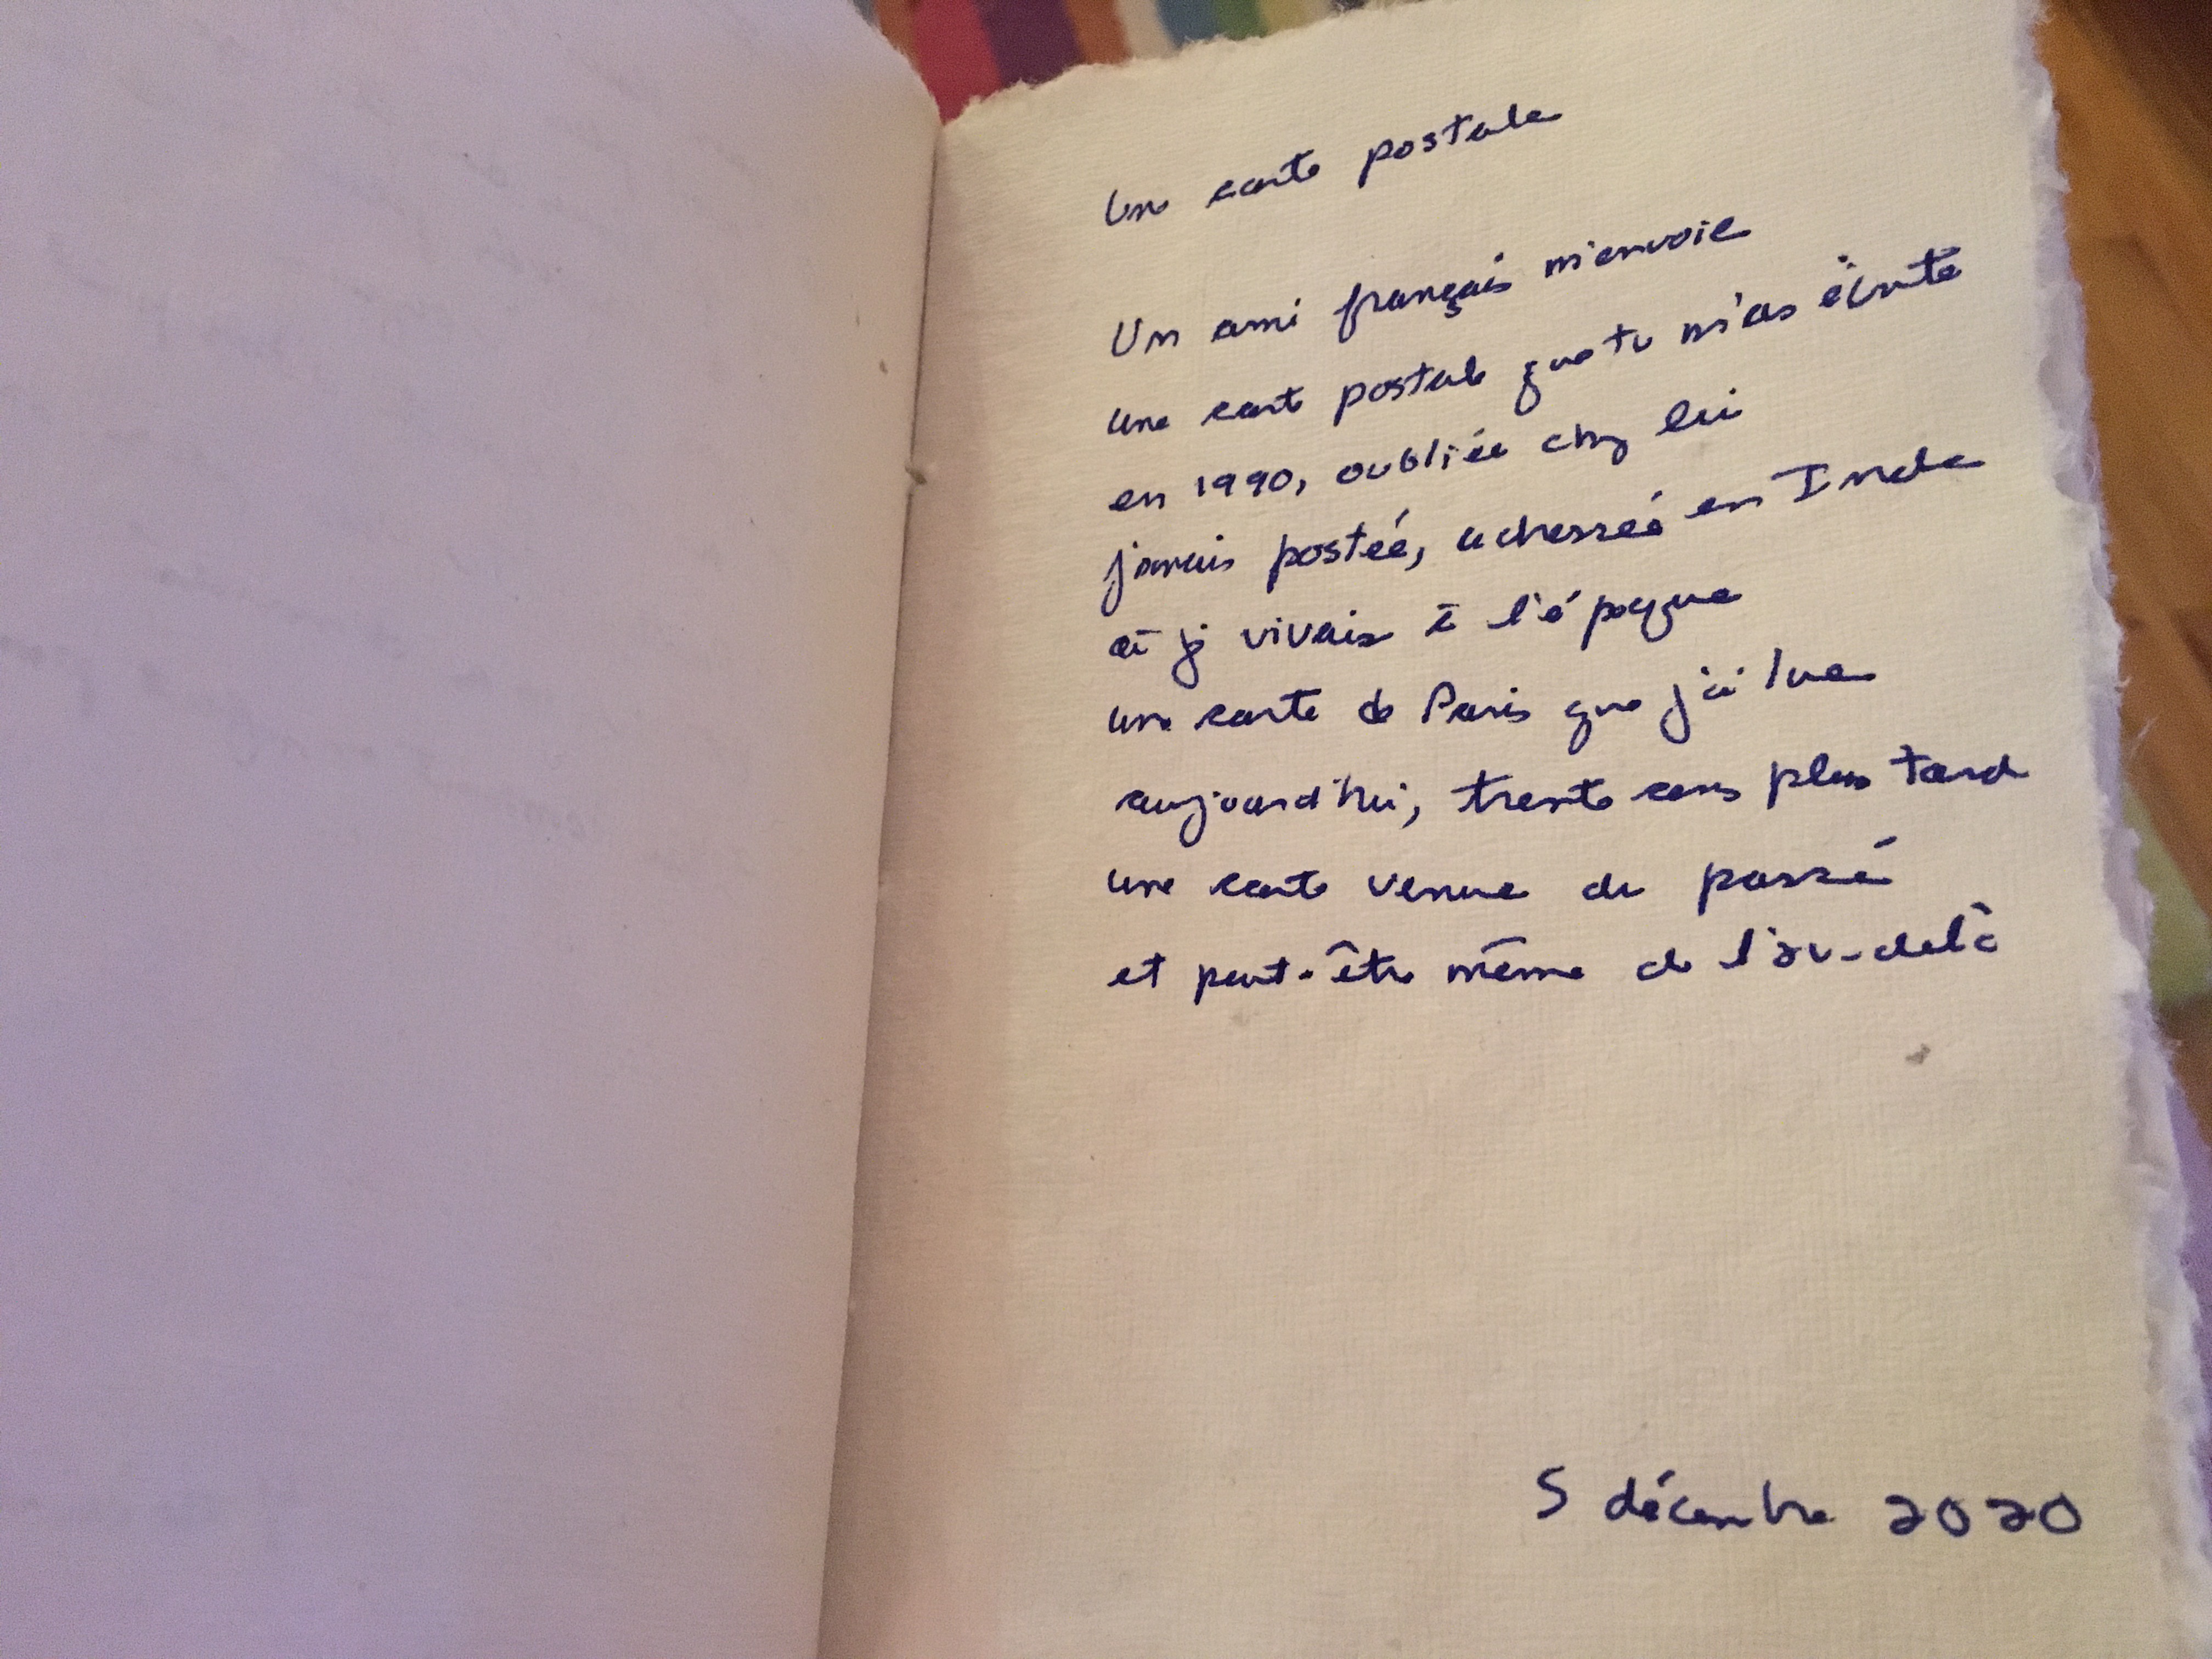 Une carte postale
Un ami français m'envoie
une carte postale que tu m'as écrite
en 1990, oubliée chez lui
jamais postée, adressée en Inde
où je vivais à l'époque
une carte de Paris que j'ai lue
aujourd'hui, trente ans plus tard
une carte venue du passé
et peut-être même de l'au-delà
5 décembre 2020